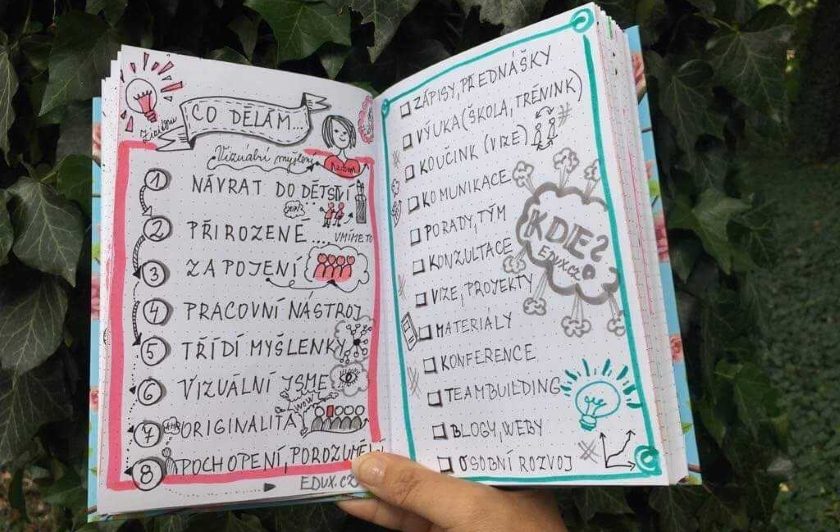 CO DĚLÁM...
Vizuální myšlení
1 NÁVRAT DO DĚTSTVÍ
2 PŘIROZENÉ... UMÍME TO
3 ZAPOJENÍ
4 PRACOVNÍ NÁSTROJ
5 TŘÍDÍ MYŠLENKY
6 VIZUÁLNÍ JSME
WOW
7 ORIGINALITA
8 POCHOPENÍ, POROZUMĚNÍ
EDUX.CZ
ZÁPISY, PŘEDNÁŠKY
VÝUKA (ŠKOLA, TRÉNINK)
KOUČINK (VIZE)
KOMUNIKACE
PORADY, TÝM
KONZULTACE
VIZE, PROJEKTY
MATERIÁLY
KONFERENCE
TEAMBUILDING
BLOGY, WEBY
OSOBNÍ ROZVOJ
KDE?
EDUX.CZ